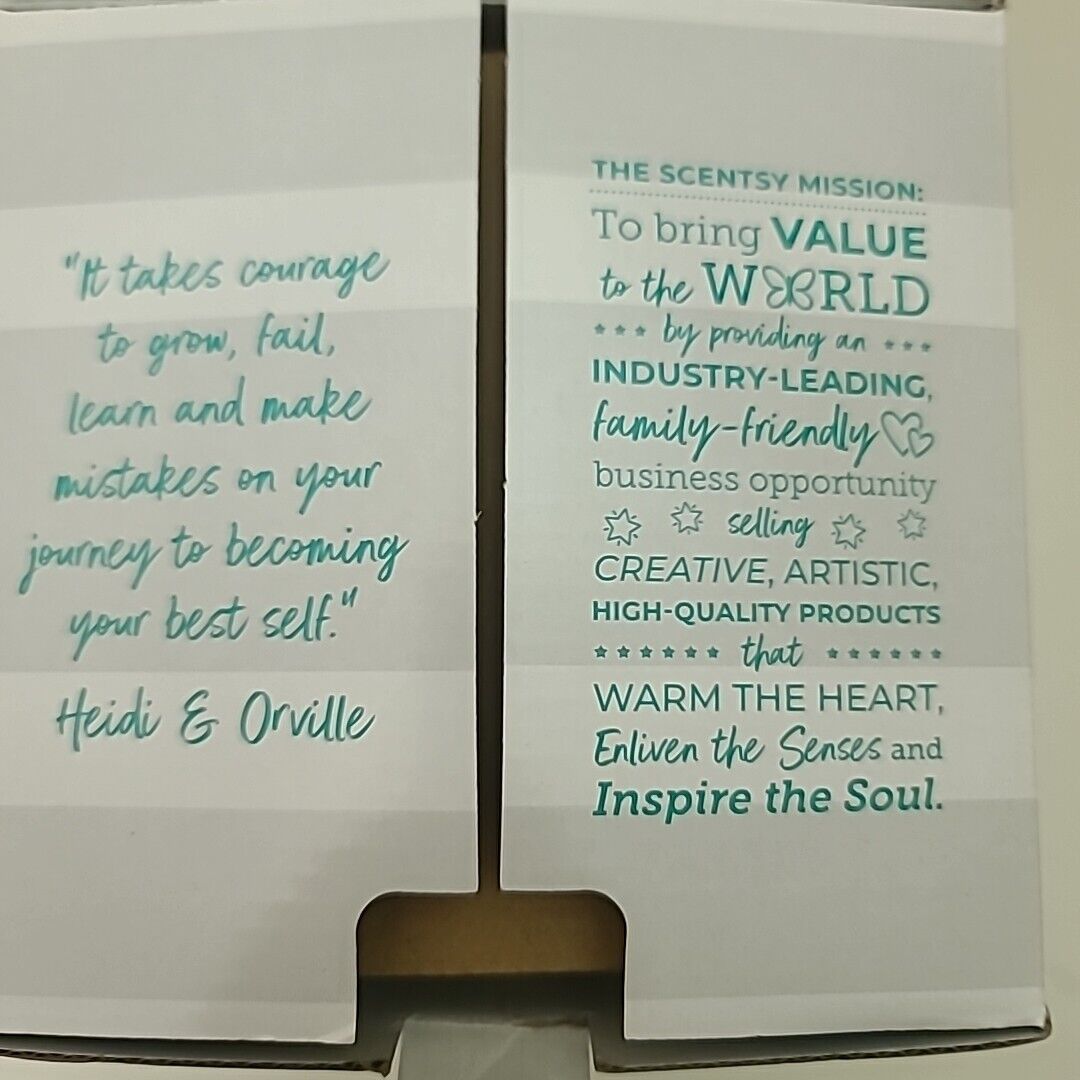 "It takes courage
to grow, fail,
learn and make
mistakes on your
journey to becoming
your best self."
Heidi & Orville
THE SCENTSY MISSION:
To bring VALUE
to the WORLD
by providing an
INDUSTRY-LEADING,
family-friendly
business opportunity
selling
CREATIVE, ARTISTIC,
HIGH-QUALITY PRODUCTS
that
WARM THE HEART,
Enliven the Senses and
Inspire the Soul.